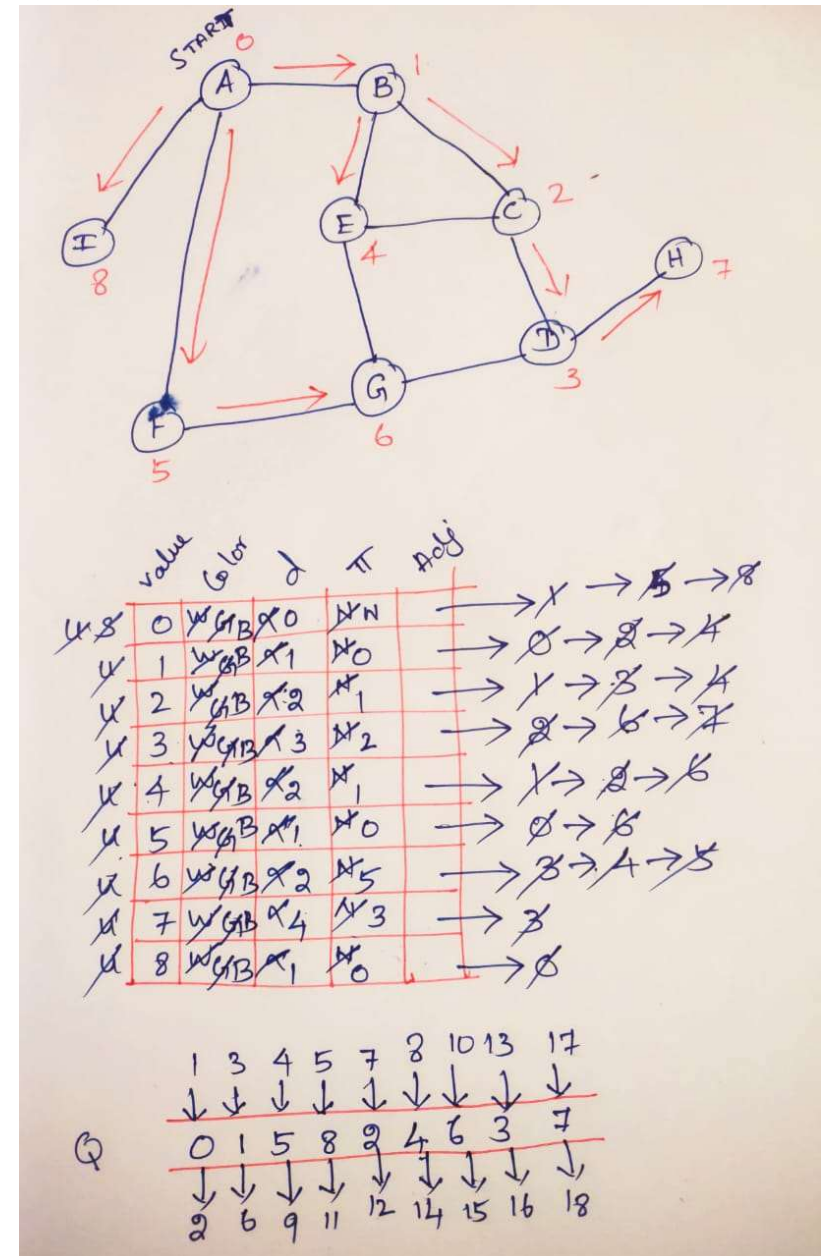 START
0
A B 1
E C 2
I 4 H 7
8
D
G 3
F 6
5
value Color d π Adj
u s 0 W G B ∝ 0 N N → 1 → 5 → 8
u 1 W G B ∝ 1 N 0 → 0 → 2 → 4
u 2 W G B ∝ 2 N 1 → 1 → 3 → 4
u 3 W G B ∝ 3 N 2 → 2 → 6 → 7
u 4 W G B ∝ 2 N 1 → 1 → 2 → 6
u 5 W G B ∝ 1 N 0 → 0 → 6
u 6 W G B ∝ 2 N 5 → 3 → 4 → 5
u 7 W G B ∝ 4 N 3 → 3
u 8 W G B ∝ 1 N 0 → 0
1 3 4 5 7 8 10 13 17
Q 0 1 5 8 2 4 6 3 7
2 6 9 11 12 14 15 16 18